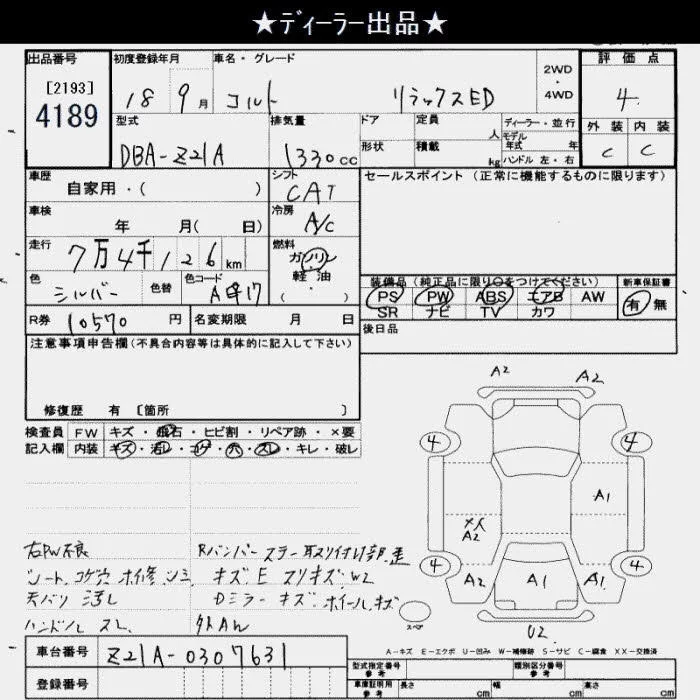 ★ディーラー出品★
出品番号
[2193]
4189
初度登録年月
18 9月
車名・グレード
コルト リラックスED
2WD
・
4WD
評価点
4
外装 内装
C C
型式
DBA-Z21A
排気量
1330cc
ドア
形状
定員
人
積載
kg
ディーラー・並行
モデル
年式 年
ハンドル 左・右
車歴
自家用・( )
シフト
CAT
セールスポイント (正常に機能するものに限ります)
車検
年 月( 日)
冷房
A/C
走行
7万4千126km
燃料
ガソリン
軽油
( ・ )
色
シルバー
色替
色コード
A417
装備品(純正品に限り○をつけてください)
PS PW ABS エアB AW
SR ナビ TV カワ
新車保証書
有 無
R券
10570円
名変期限 月 日
後日品
注意事項申告欄(不具合内容等は具体的に記入して下さい)
修復歴 有 〔箇所 〕
検査員 FW キズ・飛石・ヒビ割・リペア跡・×要
記入欄 内装 キズ・汚レ・コゲ・穴・スレ・キレ・破レ
右PW不良
シート、コゲ穴 ホ修 シミ
天バリ 汚レ
ハンドル スレ
Rバンパー ステー取り付け部 歪
キズ、E スリキズ、W2
Dミラー キズ、ホイールキズ
A2
A2
4
4
A1
A2
4
4
A2
A1
A1
スペア
U2
A-キズ E-エクボ U-凹み W-補修跡 S-サビ C-腐食 XX-交換済
車台番号
Z21A-0307631
登録番号
型式指定番号
参考
類別区分番号
参考
車庫証明用
参考
長さ cm
幅 cm
高さ cm